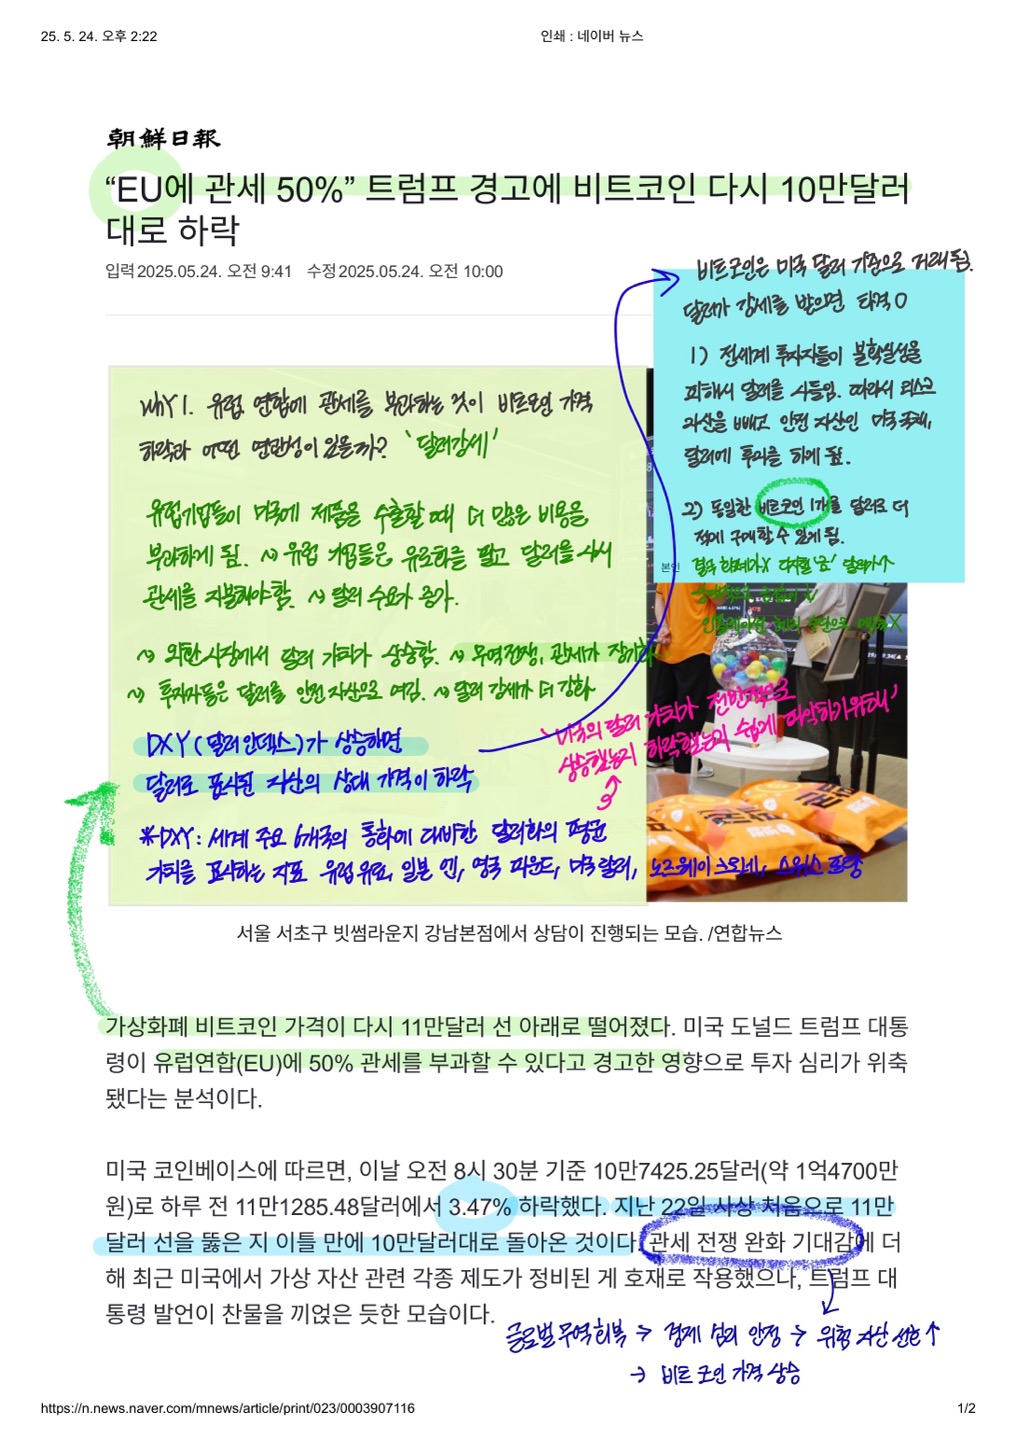 25. 5. 24. 오후 2:22
인쇄 : 네이버 뉴스
朝鮮日報
“EU에 관세 50%” 트럼프 경고에 비트코인 다시 10만달러
대로 하락
입력2025.05.24. 오전 9:41 수정2025.05.24. 오전 10:00
비트코인은 미국 달러 기준으로 거래됨.
달러가 강세를 받으면 타격 O
1) 전세계 투자자들이 불확실성을
피해서 달러를 사들임. 따라서 리스크
자산을 빼고 안전 자산인 미국국채,
달러에 투자를 하게 됨.
2) 동일한 비트코인 1개를 달러로 더
적게 구매할 수 있게 됨.
결국 화폐가X 디지털 '금' 달러가↑
인플레이션 헤지 수단으로 매력X
본인
WHY 1. 유럽 연합에 관세를 부과하는 것이 비트코인 가격
하락과 어떤 연관성이 있을까? '달러강세'
유럽기업들이 미국에 제품을 수출할 때 더 많은 비용을
부과하게 됨. ~> 유럽 기업들은 유로화를 팔고 달러를 사서
관세를 지불해야함. ~> 달러 수요가 증가.
~> 외환시장에서 달러 가치가 상승함. ~> 무역전쟁, 관세가 장기화
~> 투자자들은 달러를 안전 자산으로 여김. ~> 달러 강세가 더 강화
DXY (달러 인덱스)가 상승하면
달러로 표시된 자산의 상대 가격이 하락
'미국의 달러 가치가 전반적으로
상승했는지 하락했는지 쉽게 파악하기위해'
*DXY: 세계 주요 6개국의 통화에 대비한 달러화의 평균
가치를 표시하는 지표 유럽 유로, 일본 엔, 영국 파운드, 미국 달러, 노즈웨이 크로네, 스위스 프랑
서울 서초구 빗썸라운지 강남본점에서 상담이 진행되는 모습. /연합뉴스
가상화폐 비트코인 가격이 다시 11만달러 선 아래로 떨어졌다. 미국 도널드 트럼프 대통
령이 유럽연합(EU)에 50% 관세를 부과할 수 있다고 경고한 영향으로 투자 심리가 위축
됐다는 분석이다.
미국 코인베이스에 따르면, 이날 오전 8시 30분 기준 10만7425.25달러(약 1억4700만
원)로 하루 전 11만1285.48달러에서 3.47% 하락했다. 지난 22일 사상 처음으로 11만
달러 선을 뚫은 지 이틀 만에 10만달러대로 돌아온 것이다. 관세 전쟁 완화 기대감에 더
해 최근 미국에서 가상 자산 관련 각종 제도가 정비된 게 호재로 작용했으나, 트럼프 대
통령 발언이 찬물을 끼얹은 듯한 모습이다.
글로벌 무역 회복 → 경제 심리 안정 → 위험 자산 선호 ↑
→ 비트코인 가격 상승
https://n.news.naver.com/mnews/article/print/023/0003907116
1/2